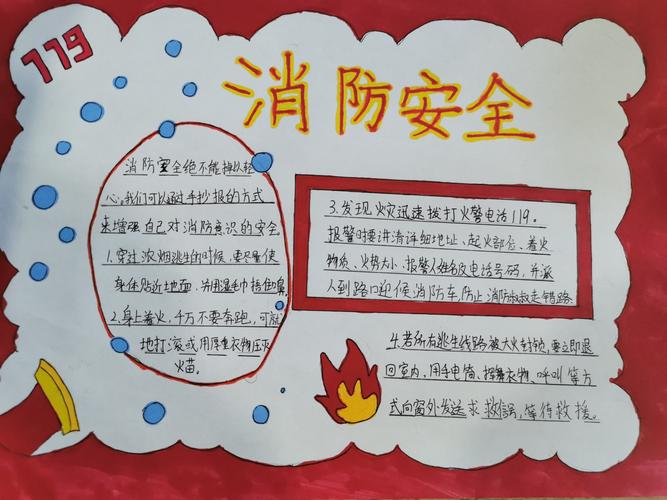 119
消防安全
消防安全绝不能掉以轻
心,我们可以通过手抄报的方式
来增强自己对消防意识的安全
1.穿过浓烟逃生的时候,要尽量使
身体贴近地面,并用湿毛巾捂住口鼻
2.身上着火,千万不要奔跑,可就
地打滚或用厚重衣物压灭
火苗。
3.发现火灾迅速拨打火警电话119。
报警时要讲清详细地址、起火部位、着火
物质、火势大小、报警人姓名及电话号码,并派
人到路口迎候消防车,防止消防叔叔走错路
4.若所有逃生线路被大火封锁,要立即退
回室内,用手电筒、挥舞衣物、呼叫等方
式向窗外发送求救信号,等待救援。